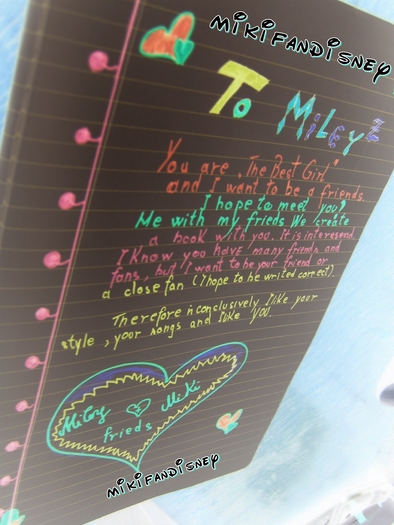 MIKIFANDISNEY
To Miley
You are "The Best Girl"
and I want to be a friends
I hope to meet you?
Me with my frieds We create
a book with you. It is interesend
I know you have many friends and
fans, but I want to be your friend or
a close fan (I hope to be writed correct).
Therefore in conclusively I like your
style, your songs and I like YOU.
Miley Miki
frieds
MIKIFANDISNEY